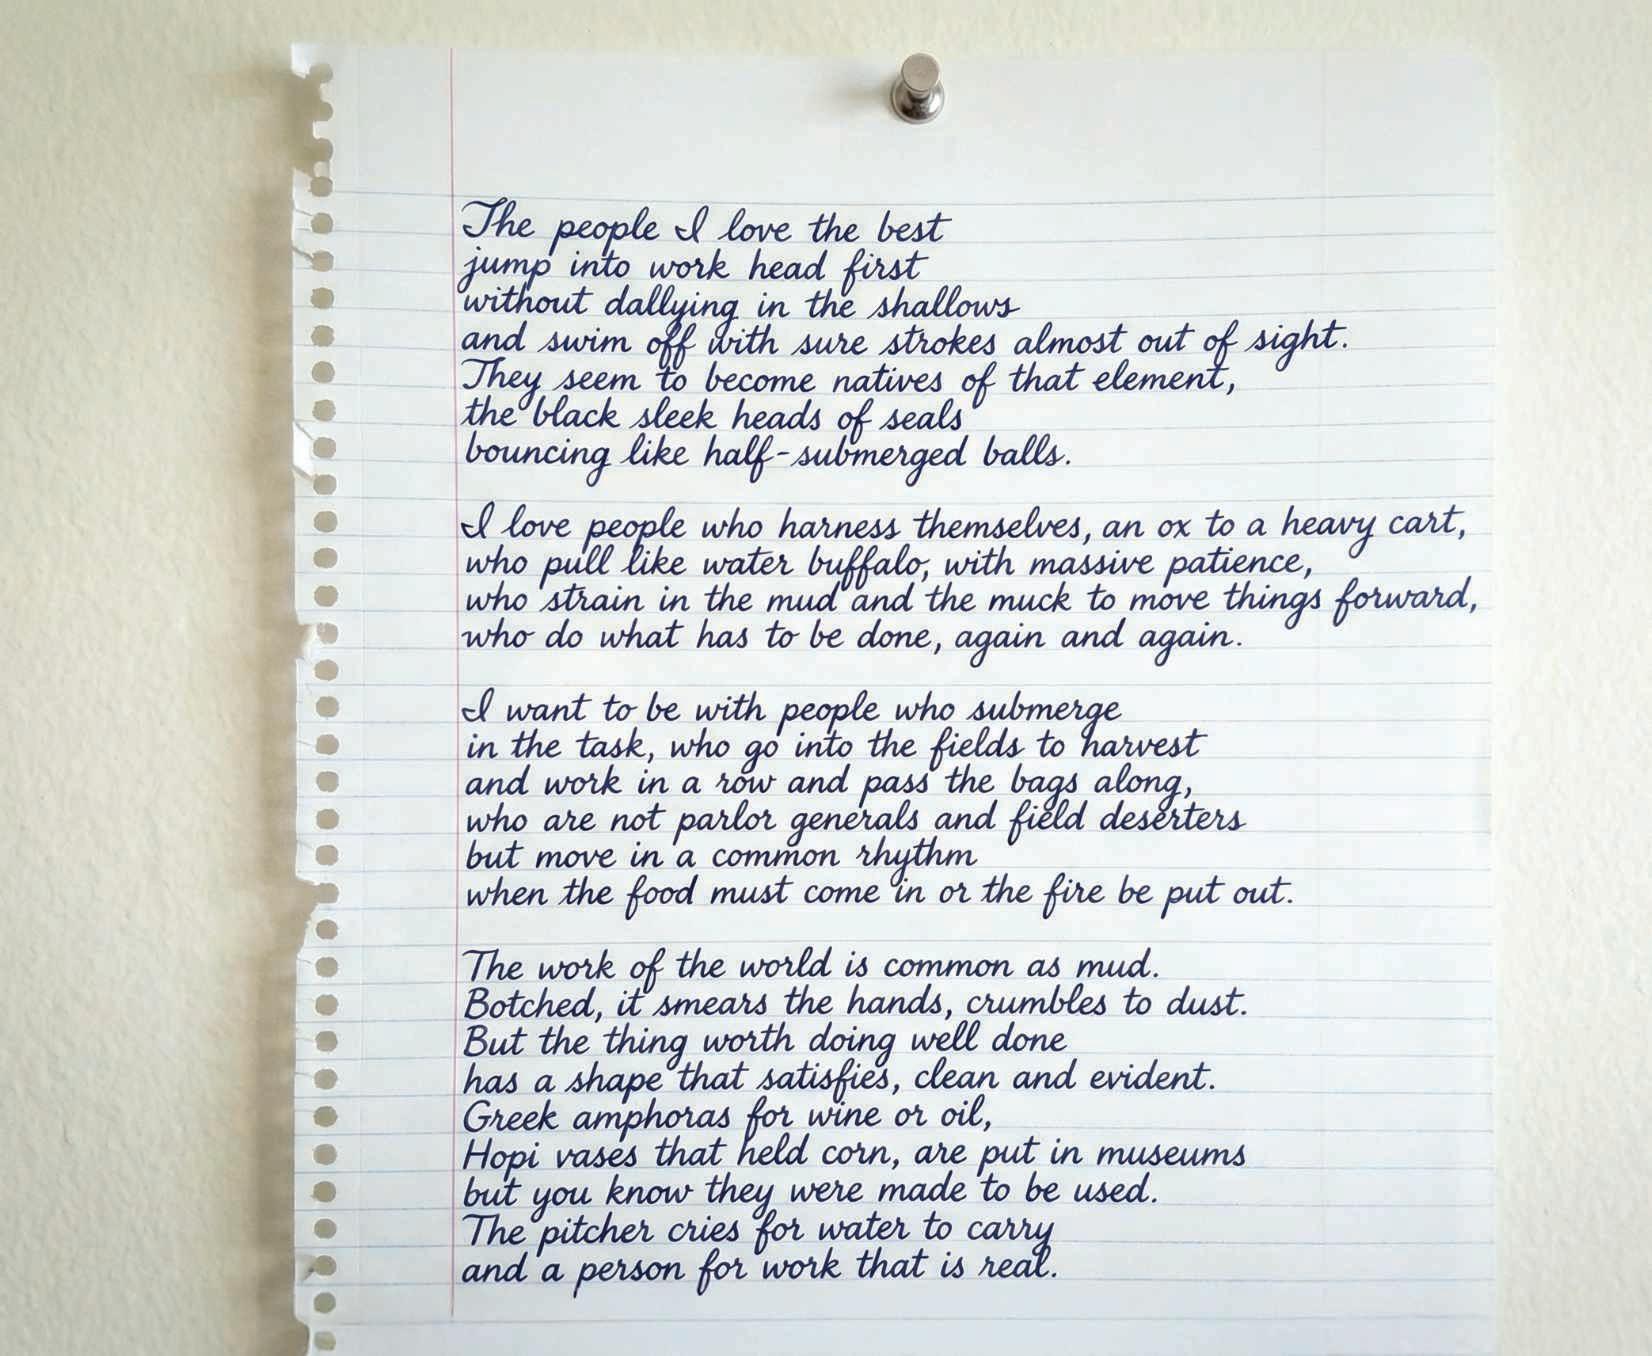 The people I love the best
jump into work head first
without dallying in the shallows
and swim off with sure strokes almost out of sight.
They seem to become natives of that element,
the black sleek heads of seals
bouncing like half-submerged balls.
I love people who harness themselves, an ox to a heavy cart,
who pull like water buffalo, with massive patience,
who strain in the mud and the muck to move things forward,
who do what has to be done, again and again.
I want to be with people who submerge
in the task, who go into the fields to harvest
and work in a row and pass the bags along,
who are not parlor generals and field deserters
but move in a common rhythm
when the food must come in or the fire be put out.
The work of the world is common as mud.
Botched, it smears the hands, crumbles to dust.
But the thing worth doing well done
has a shape that satisfies, clean and evident.
Greek amphoras for wine or oil,
Hopi vases that held corn, are put in museums
but you know they were made to be used.
The pitcher cries for water to carry
and a person for work that is real.